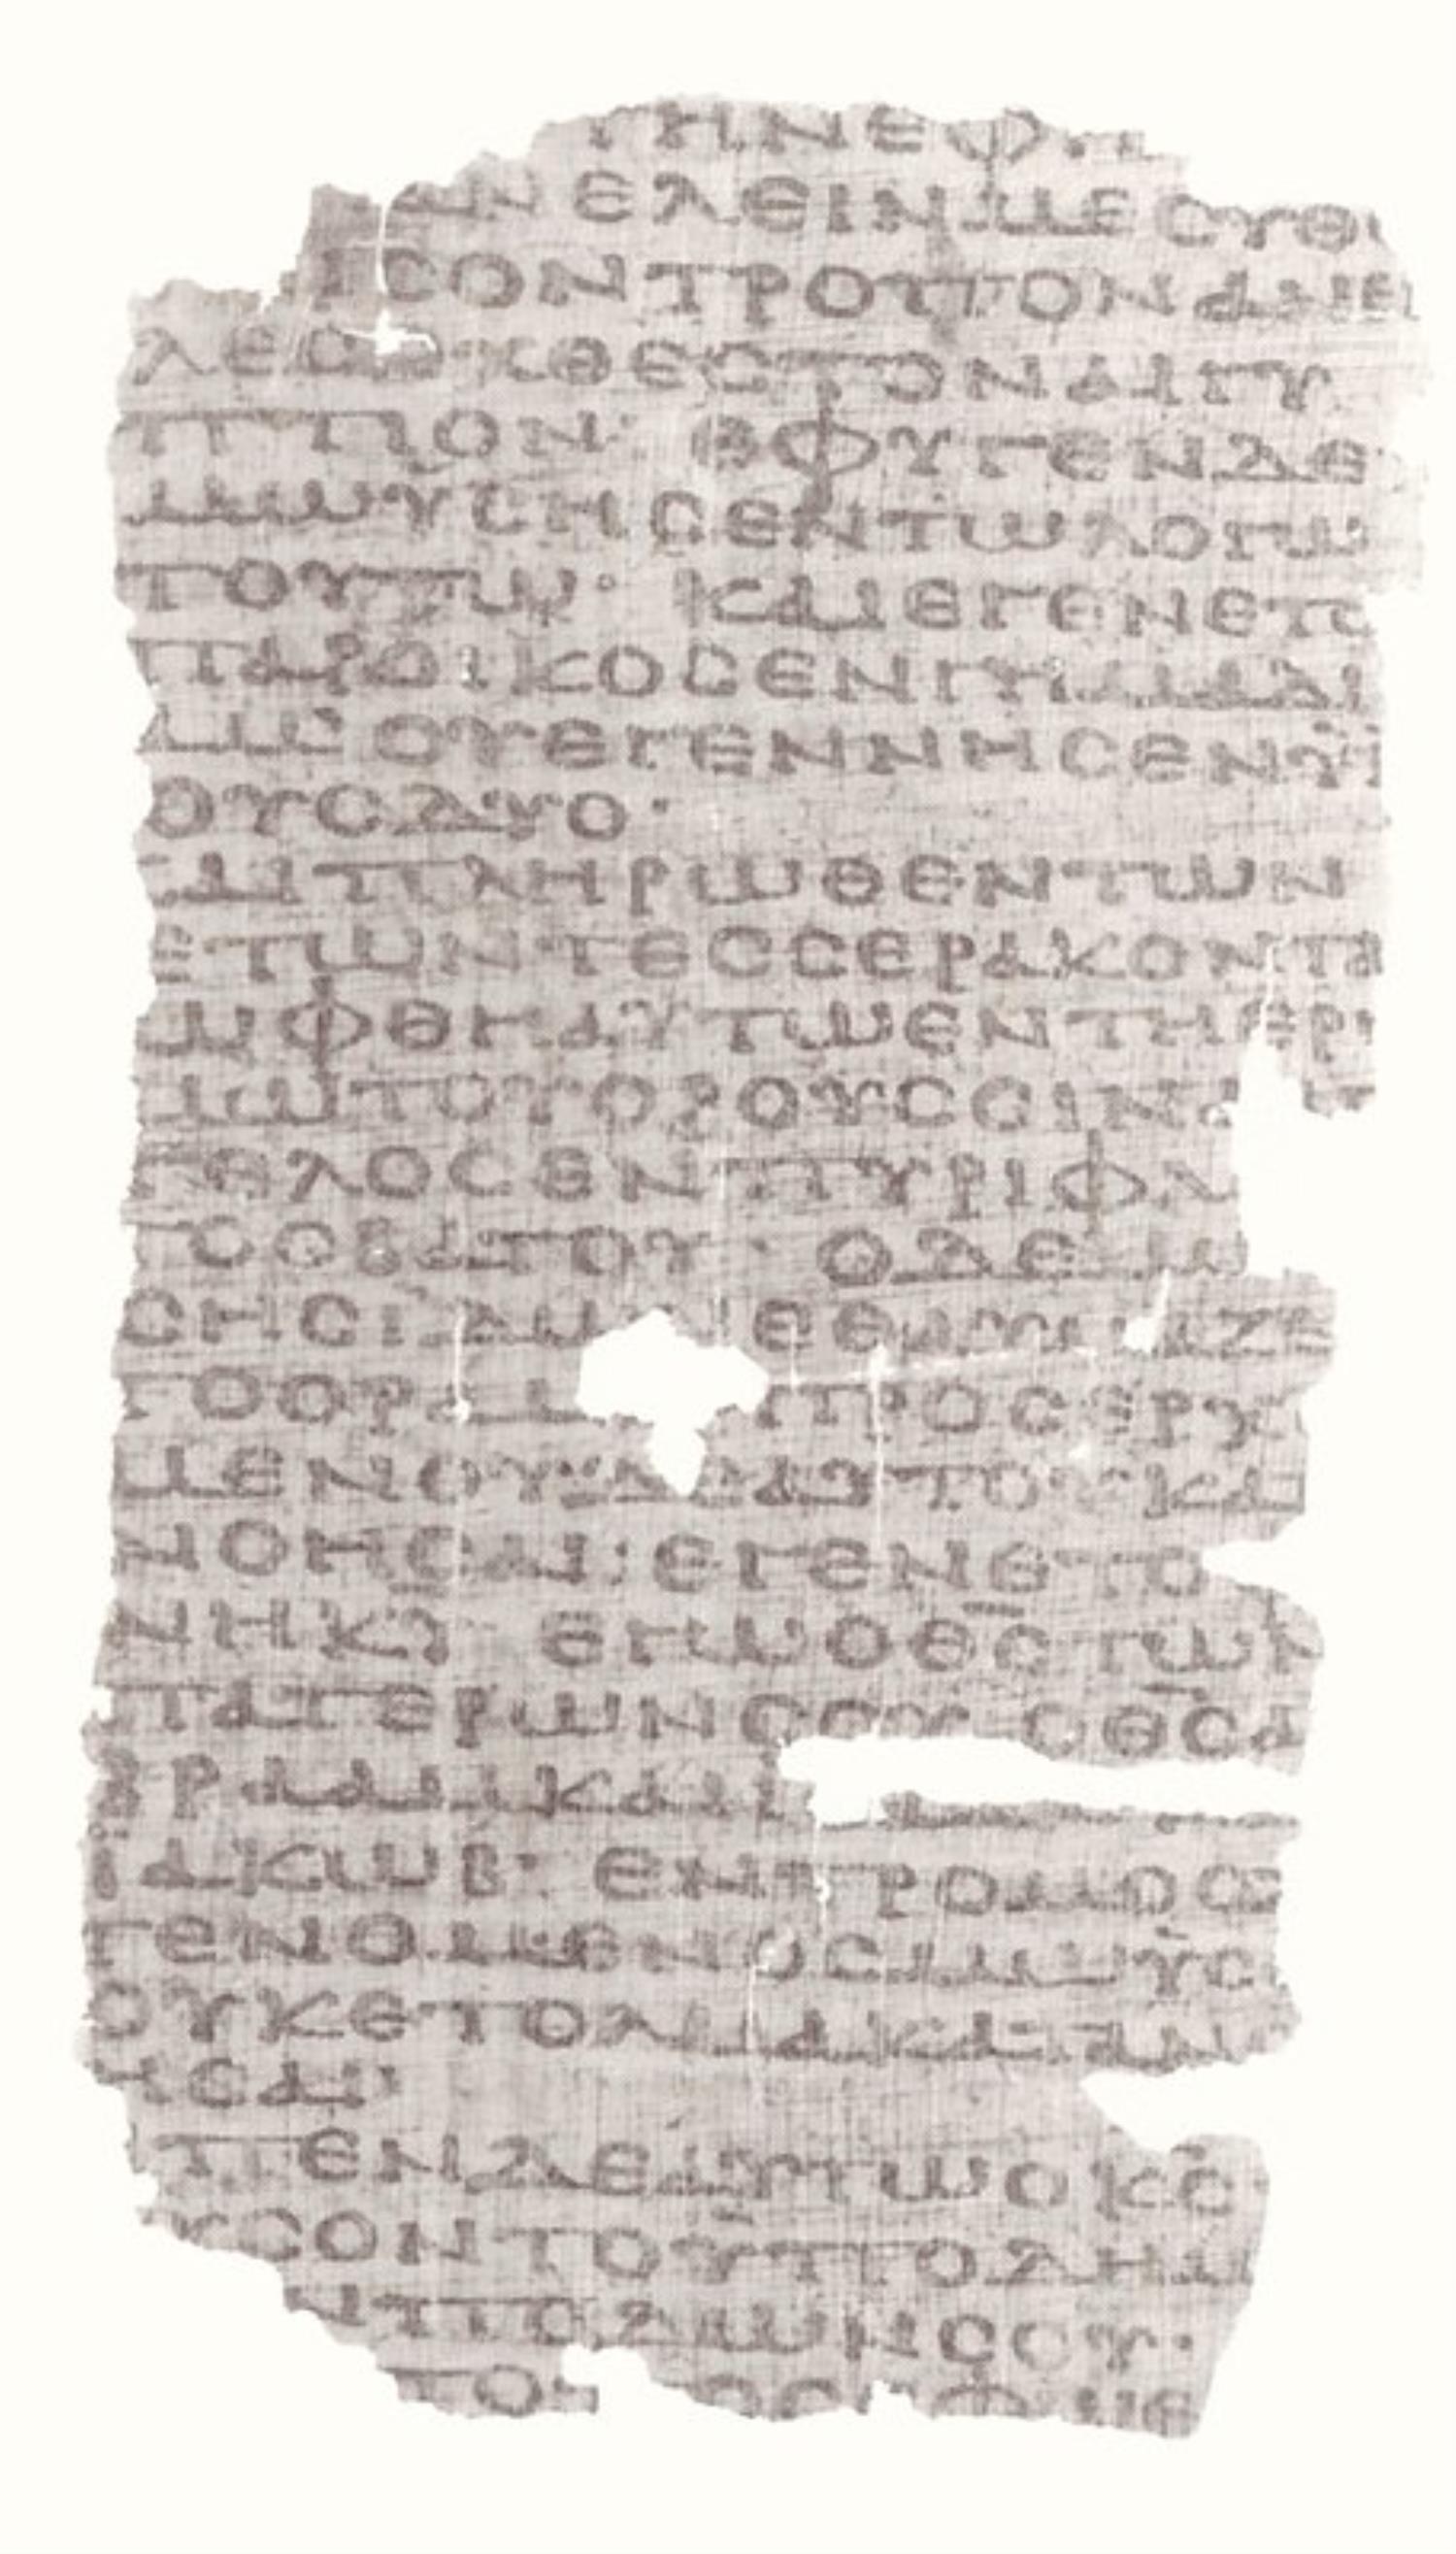 ΤΗΝΕΦΗ
ΑΝΕΛΕΙΝΜΕСΥΘΕ
СΟΝΤΡΟΠΟΝΑΝΕΙ
ΛΕС ΧΘΕСΤΟΝΑΙΓΥ
ΠΤΙΟΝ· ΕΦΥΓΕΝΔΕ
ΜΩΥСΗСΕΝΤΩΛΟΓΩ
ΤΟΥΤΩ· ΚΑΙΕΓΕΝΕΤΟ
ΠΑΡΟΙΚΟСΕΝΓΗΜΑΔΙ
ΑΜ· ΟΥΕΓΕΝΝΗСΕΝΫΙ
ΟΥСΔΥΟ·
ΚΑΙΠΛΗΡΩΘΕΝΤΩΝ
ΕΤΩΝΤΕССΕΡΑΚΟΝΤΑ
ΩΦΘΗΑΥΤΩΕΝΤΗΕΡΗ
ΜΩΤΟΥΟΡΟΥССΙΝΑ
ΓΕΛΟСΕΝΠΥΡΙΦΛ
ΓΟСΒΑΤΟΥ· ΟΔΕΜΩ
СΗСΙΔΩ ΕΘΑΥΜΑΖΕ
ΤΟΟΡΑΜ ΠΡΟСΕΡΧ
ΜΕΝΟΥΔΕΑΥΤΟΥΚΑΤΑ
ΝΟΗСΑΙ: ΕΓΕΝΕΤΟ
ΝΗΚΥ ΕΓΩΟΘС ΤΩΝ
ΠΑΤΕΡΩΝСΟΥ ΟΘСΑ
ΒΡΑΑΜΚΑΙΙ
ΪΑΚΩΒ· ΕΝΤΡΟΜΟС
ΓΕΝΟΜΕΝΟСΜΩΫС
ΟΥΚΕΤΟΛΜΑΚΑΤΑΝΟ
ΗСΑΙ·
ΠΕΝΔΕΑΥΤΩΟΚС
ΥСΟΝΤΟΫΠΟΔΗΜ
ΝΠΟΔΩΝСΟΥ·
ΤΟΠΟСΕΦΩ